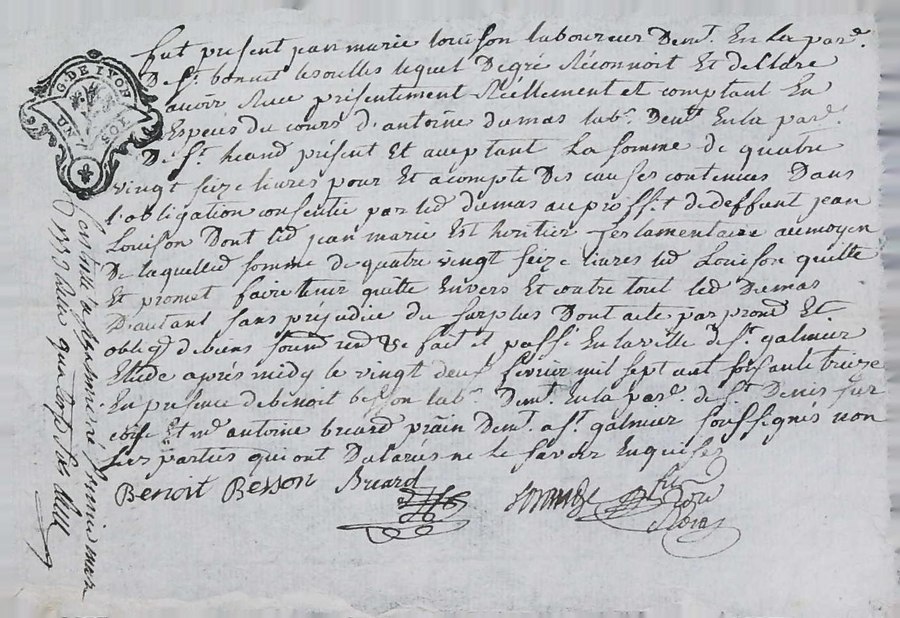 G. DE LYON
fut present jean marie louison laboureur demt. En la par.
De st. bonnet lesoulles lequel Degré Réconnoit Et declare
avoir Reçu présentement Réellement et comptant En
Especes du cours d'antoine dumas labr. demt. En la par.
De st. heand présent Et acceptant La somme de quatre
vingt seize livres pour Et acompte Des causes contenues Dans
l'obligation consentie par led dumas au proffit de deffunt jean
Louison Dont led jean marie Est heritier testamentaire au moyen
De laquelle somme de quatre vingt seize livres led Louison quitte
Et promet faire tenir quitte Envers Et contre tout led Dumas
D'autant sans prejudice du surplus Dont acte par prome Et
obligon debiens soumon renon &c fait et passé En la ville de st. galmier
Etude aprés midy le vingt deux fevrier mil sept cent soixante treize
En presence de benoit besson labr. demt. En la par. de st. Denis sur
coise Et me antoine breard pratn demt. a st. galmier soussignés non
les parties qui ont Declaré ne le savoir Enquises
BENOIT BESSON Breard
Controllé a st galmier le mars
1773 Reçu quatorze sols